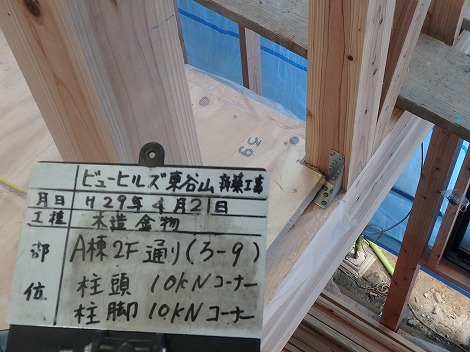 ビューヒルズ東谷山 新築工事
月日 H29年4月21日
工種 木造金物
部位 A棟2F通り(3-9)
柱頭 10kNコーナー
柱脚 10kNコーナー
39